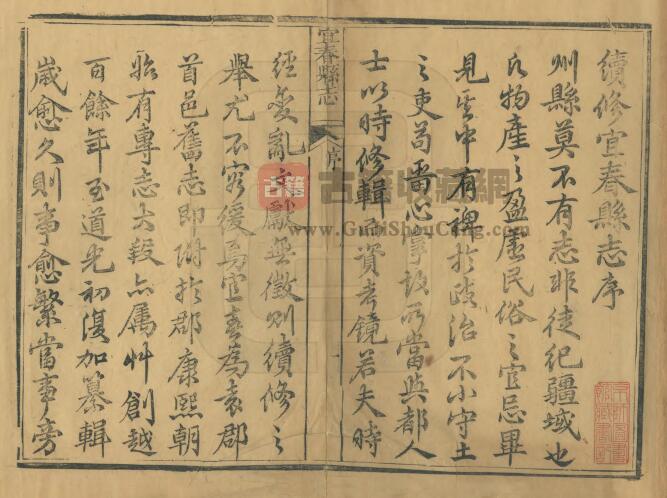 續修宜春縣志序
州縣莫不有志非徒紀疆域也
物產之盈虛民俗之宜忌畢
見其中有裨於政治不小守土
之吏苟留心掌故所當與都人
士以時修輯而資考鏡若夫時
宜春縣志
序
經變亂文獻無徵則續修之
舉尤不容緩焉宜春為袁郡
首邑舊志即附於郡康熙朝
始有專志大段亦屬艸創越
百餘年至道光初復加纂輯
歲愈久則事愈繁當事旁
古籍
古籍收藏網
www.GujiShouCang.com